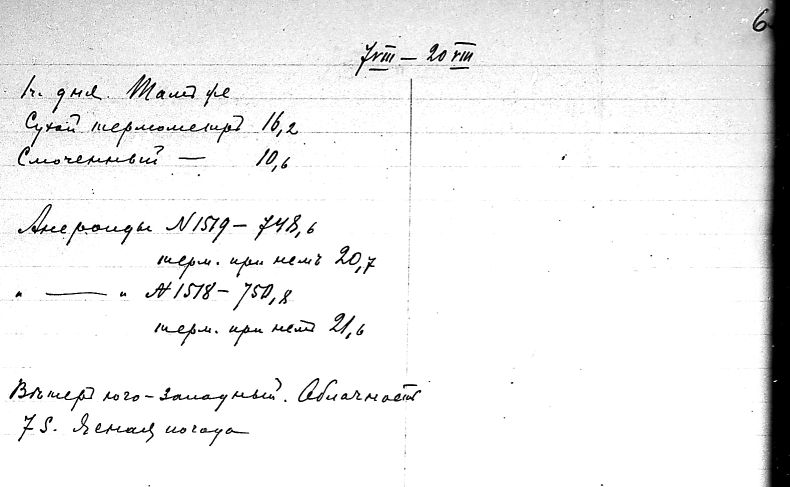 6
7 VIII — 20 VIII
1 ч. дня.
Сухой термометръ 16,2
Смоченный — 10,6
Анероиды N 1519 — 748,6
терм. при немъ 20,7
" — " N 1518 — 750,8
терм. при немъ 21,6
Вѣтеръ юго-западный. Облачность
7 S. Ясная погода